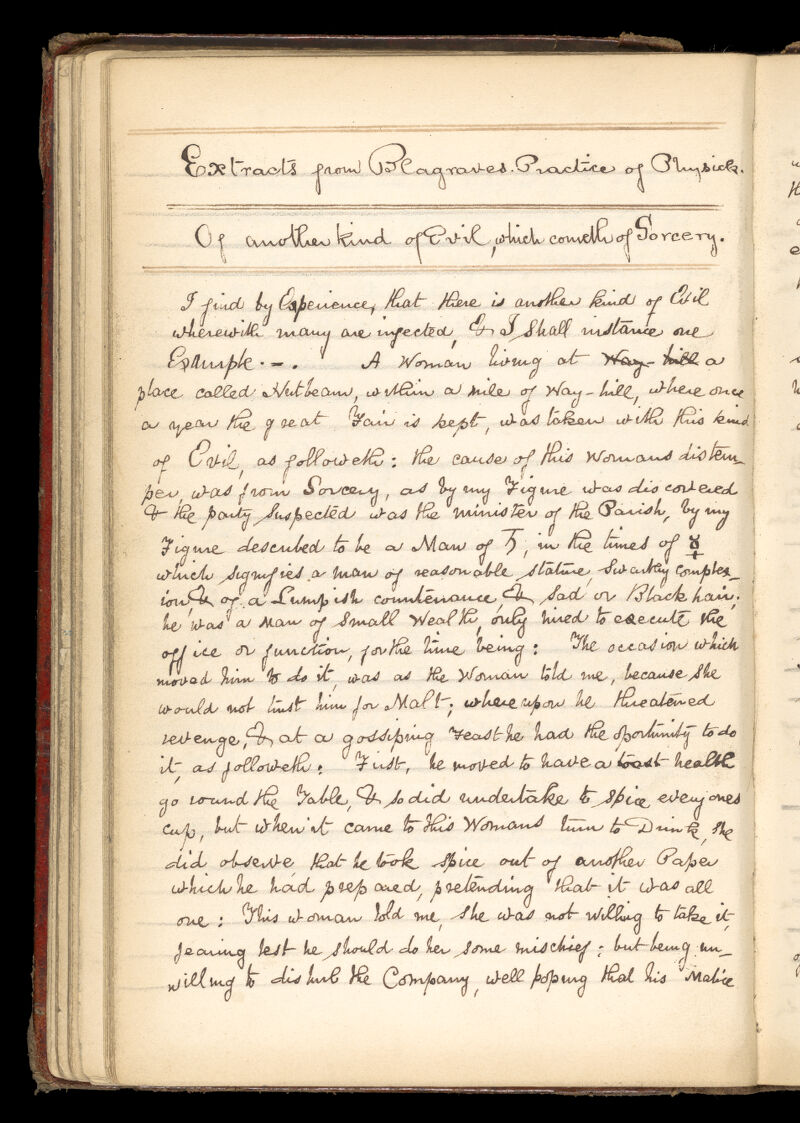 Extracts from Blagraves. Practice of Physick.
Of another kind of Evil, which cometh of Sorcery.
I find by Experience, that there is another kind of Evil
wherewith many are infected, & I shall instance one
Example. – . A Woman living at Way-hill a
place called Nutbeam, within a mile of Way-hill, where once
a year the great Fair is kept, was taken with this kind
of Evil, as followeth: the cause of this Womans distem-
per, was from Sorcery, as by my Figure was discovered
& the party suspected was the minister of the Parish, by my
Figure described to be a Man of ♄, in the times of ☿
which signifies a man of reasonable stature, Swarthy complex-
ion, & of a Lumpish countenance, & sad or Black hair;
he was a Man of Small Wealth, only hired to execute the
office or function, for the time being: The occasion which
moved him to do it, was as the Woman told me, because she
would not trust him for Malt; whereupon he threatened
revenge, & at a gossiping Feast he had the oportunity to do
it, as followeth: First, he moved to have a toast health
go round the Table, & so did undertake to spice every ones
cup, but when it came to this Womans turn to Drink, she
did observe that he took spice out of another Paper
which he had prepared, pretending that it was all
one: This woman told me, she was not willing to take it,
fearing lest he should do her some mischief; but being un-
willing to disturb the Company, well hoping that his Malice